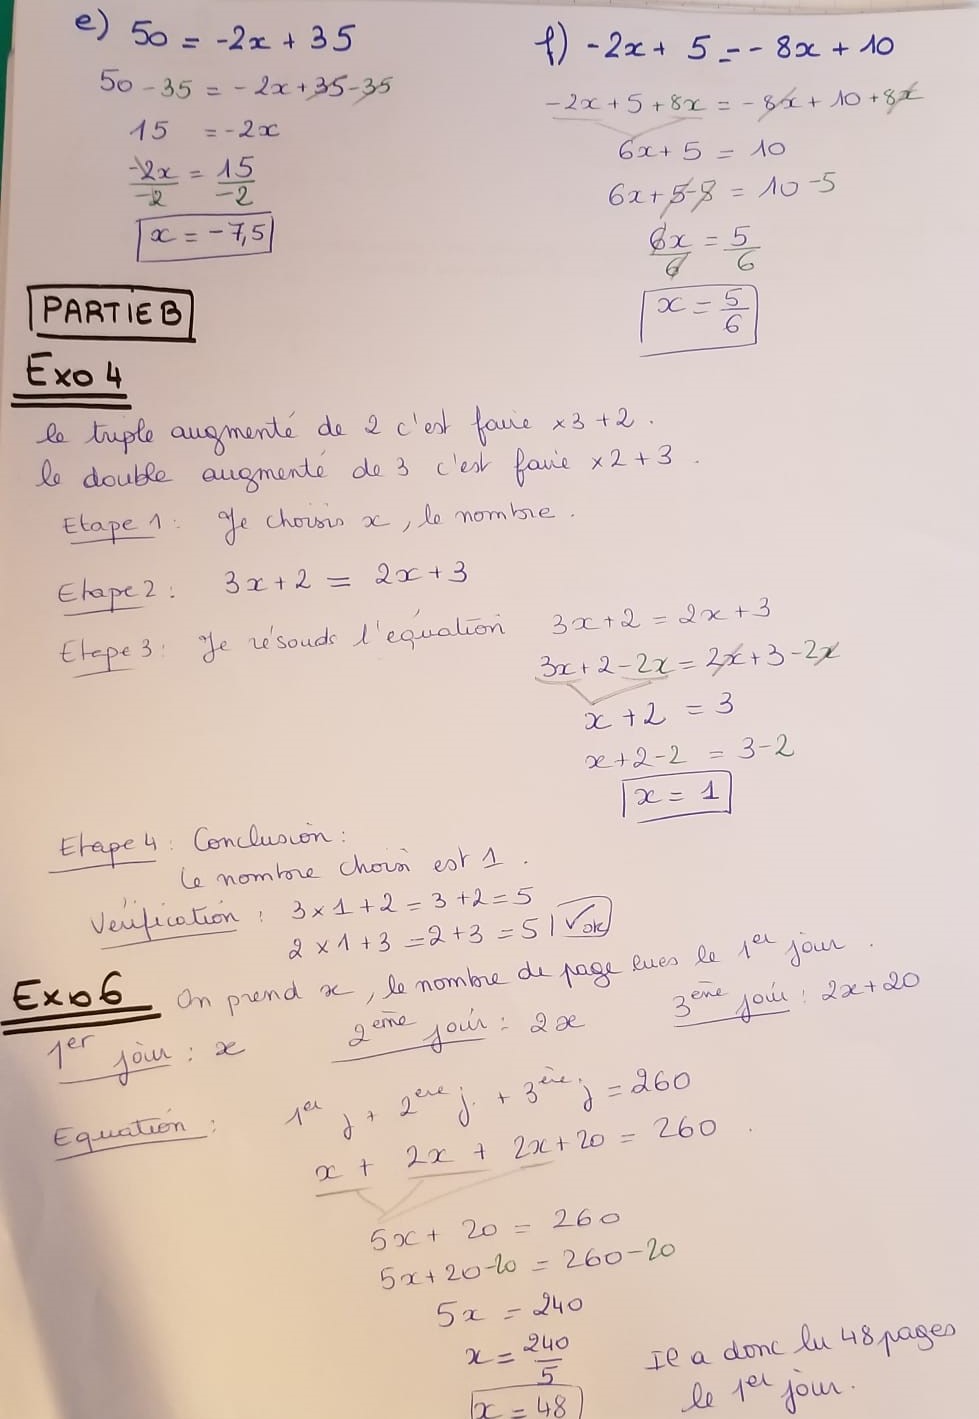 e) 50 = -2x + 35
50 - 35 = -2x + 35 - 35
15 = -2x
-2x/-2 = 15/-2
x = -7,5
f) -2x + 5 = -8x + 10
-2x + 5 + 8x = -8x + 10 + 8x
6x + 5 = 10
6x + 5 - 5 = 10 - 5
6x/6 = 5/6
x = 5/6
PARTIE B
Exo 4
le triple augmenté de 2 c'est faire ×3 +2.
le double augmenté de 3 c'est faire ×2 +3.
Etape 1: Je choisis x, le nombre.
Etape 2: 3x + 2 = 2x + 3
Etape 3: Je résouds l'équation 3x + 2 = 2x + 3
3x + 2 - 2x = 2x + 3 - 2x
x + 2 = 3
x + 2 - 2 = 3 - 2
x = 1
Etape 4: Conclusion:
le nombre choisi est 1.
Vérification: 3 × 1 + 2 = 3 + 2 = 5
2 × 1 + 3 = 2 + 3 = 5 | √ok
Exo 6 On prend x, le nombre de page lues le 1er jour.
1er jour: x 2ème jour: 2x 3ème jour: 2x + 20
Equation: 1er j + 2ème j. + 3ème j = 260
x + 2x + 2x + 20 = 260.
5x + 20 = 260
5x + 20 - 20 = 260 - 20
5x = 240
x = 240/5
x = 48
Il a donc lu 48 pages
le 1er jour.